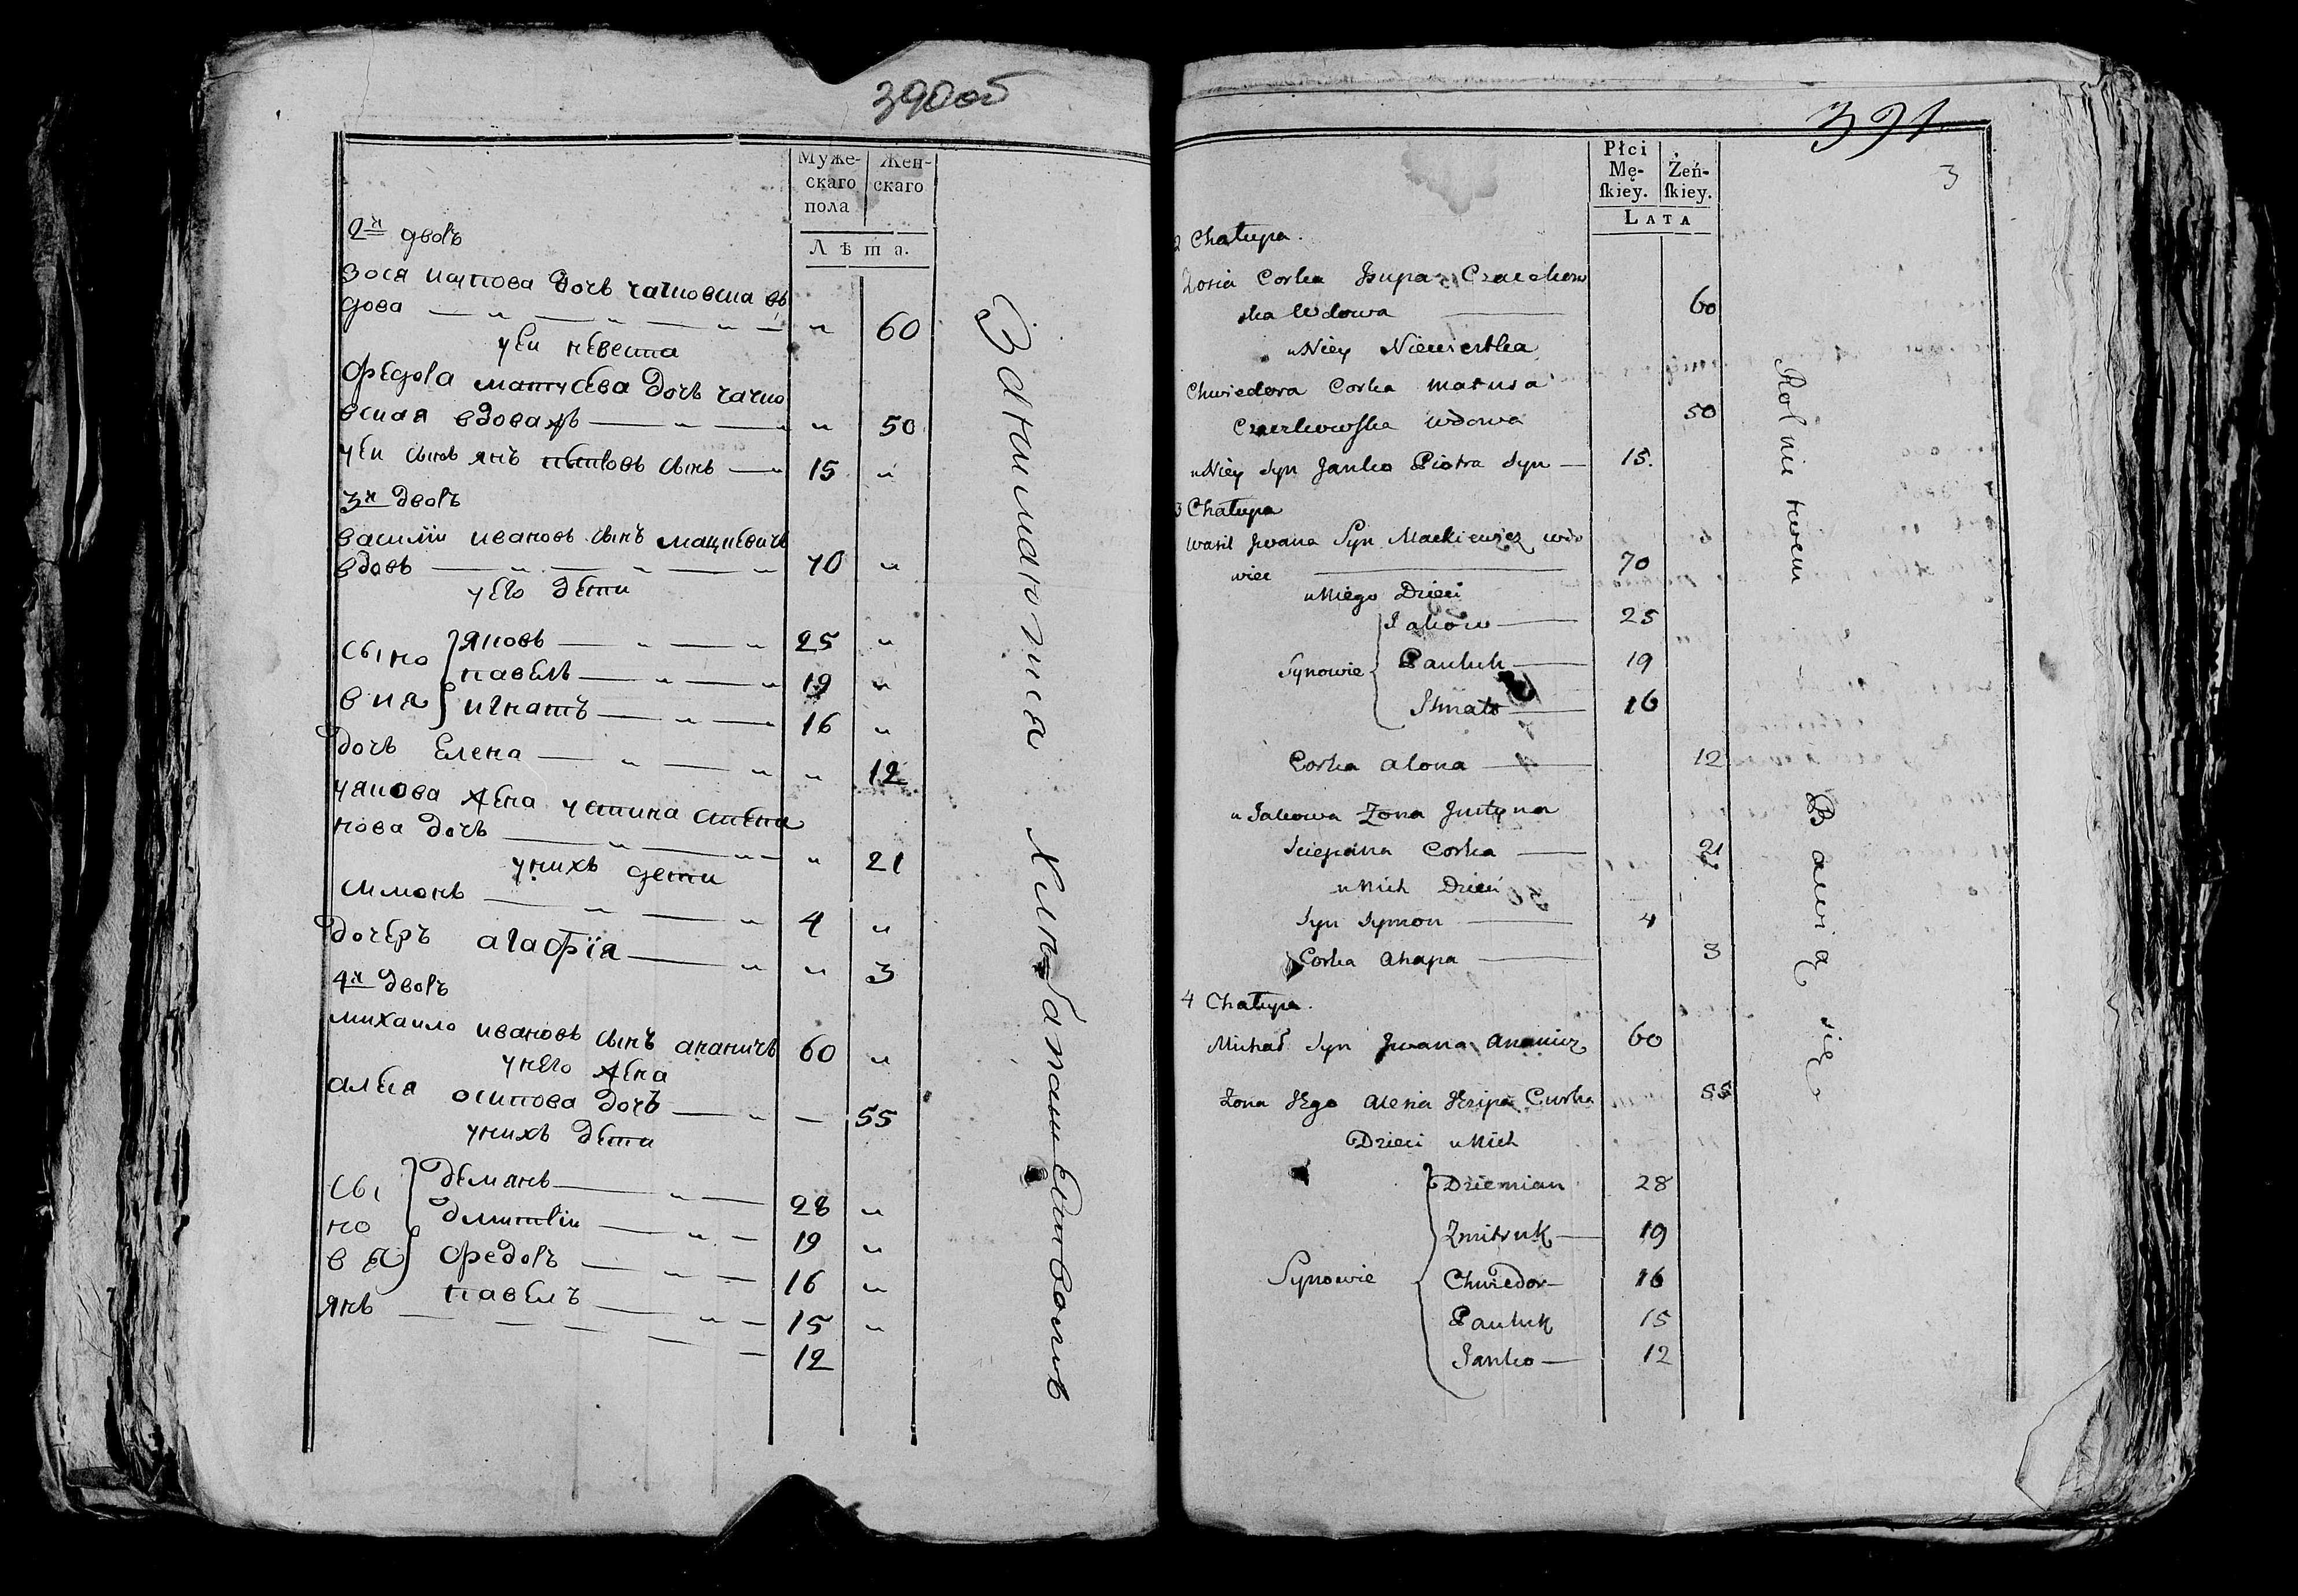 390об
Муже-
скаго
пола
Жен-
скаго
Лѣта.
2й дворъ
Зося дочь въ
дова 60
уеи невеста
Федора матусева дочь чачко
вская вдова 50
уеи сынъ янъ сынъ 15
3й дворъ
василии ивановъ сынъ мацкевичъ
вдовъ 70
уего дети
сыно
вия
яковъ 25
павелъ 19
игнатъ 16
дочь Елена 12
уякова жена устина степа
нова дочь 21
унихъ дети
симонъ 4
дочеръ агафïя 3
4й дворъ
михаило ивановъ сынъ ананичъ 60
унего жена
алена осипова дочь 55
унихъ дети
сы
но
вя
демянъ 28
дмитрiи 19
федоръ 16
павелъ 15
янъ 12
Занимаются хлѣбопашествомъ
391
3
Płci
Mę-
ſkiey.
Żeń-
ſkiey.
LATA
2 Chałupa.
Zosia Corka
ska Wdowa 60
u Niey Niewiestka
Chwiedora Corka Matusa
wdowa 50
u Niey Syn Janko Piotra Syn 15.
3 Chałupa
Wasil Jwana Syn Mackiewicz wdo
wiec 70
u Niego Dzieci
Synowie
Jakow 25
Pauluk 19
Ihnat 16
Corka Alona 12
u Jakowa Zona Justyna
Sciepana Corka 21
u Nich Dzieci
Syn Symon 4
Corka Ahapa 3
4 Chałupa.
Michał Syn Jwana Ananicz 60
Zona Jego Alena Corka 55
Dzieci u Nich
Synowie
Dziemian 28
Zmitruk 19
Chwiedor 16
Pauluk 15
Janko 12
Rolnictwem Bawią się